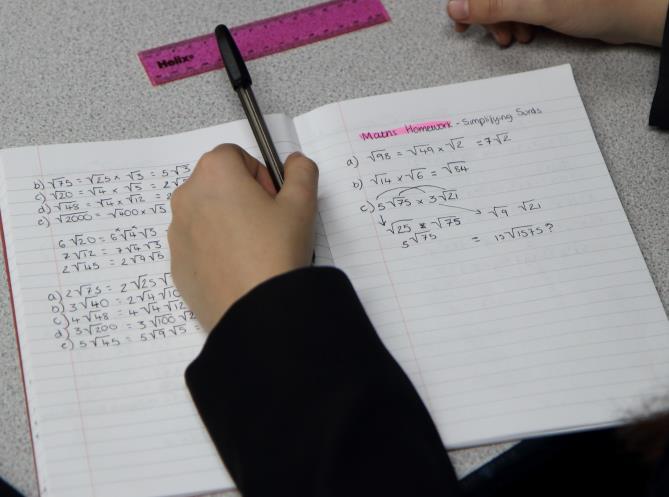 Helix
b) √75 = √25 x √3 = 5√3
c) √20 = √4 x √5 = 2√5
d) √48 = √4 x √12 =
e) √2000 = √400 x √5
6√20 = 6 x √4 x √5
7√12 = 7√4√3
2√45 = 2√9√5
a) 2√75 = 2√25
b) 3√40 = 2√4√10
c) 4√48 = 4√4√12
d) 3√200 = 3√100√2
e) 5√45 = 5√9√5 =
Maths Homework - Simplifying Surds
a) √98 = √49 x √2 = 7√2
b) √14 x √6 = √84
c) 5√75 x 3√21
√25 x √75 √9 √21
5√75 = 15√1575?